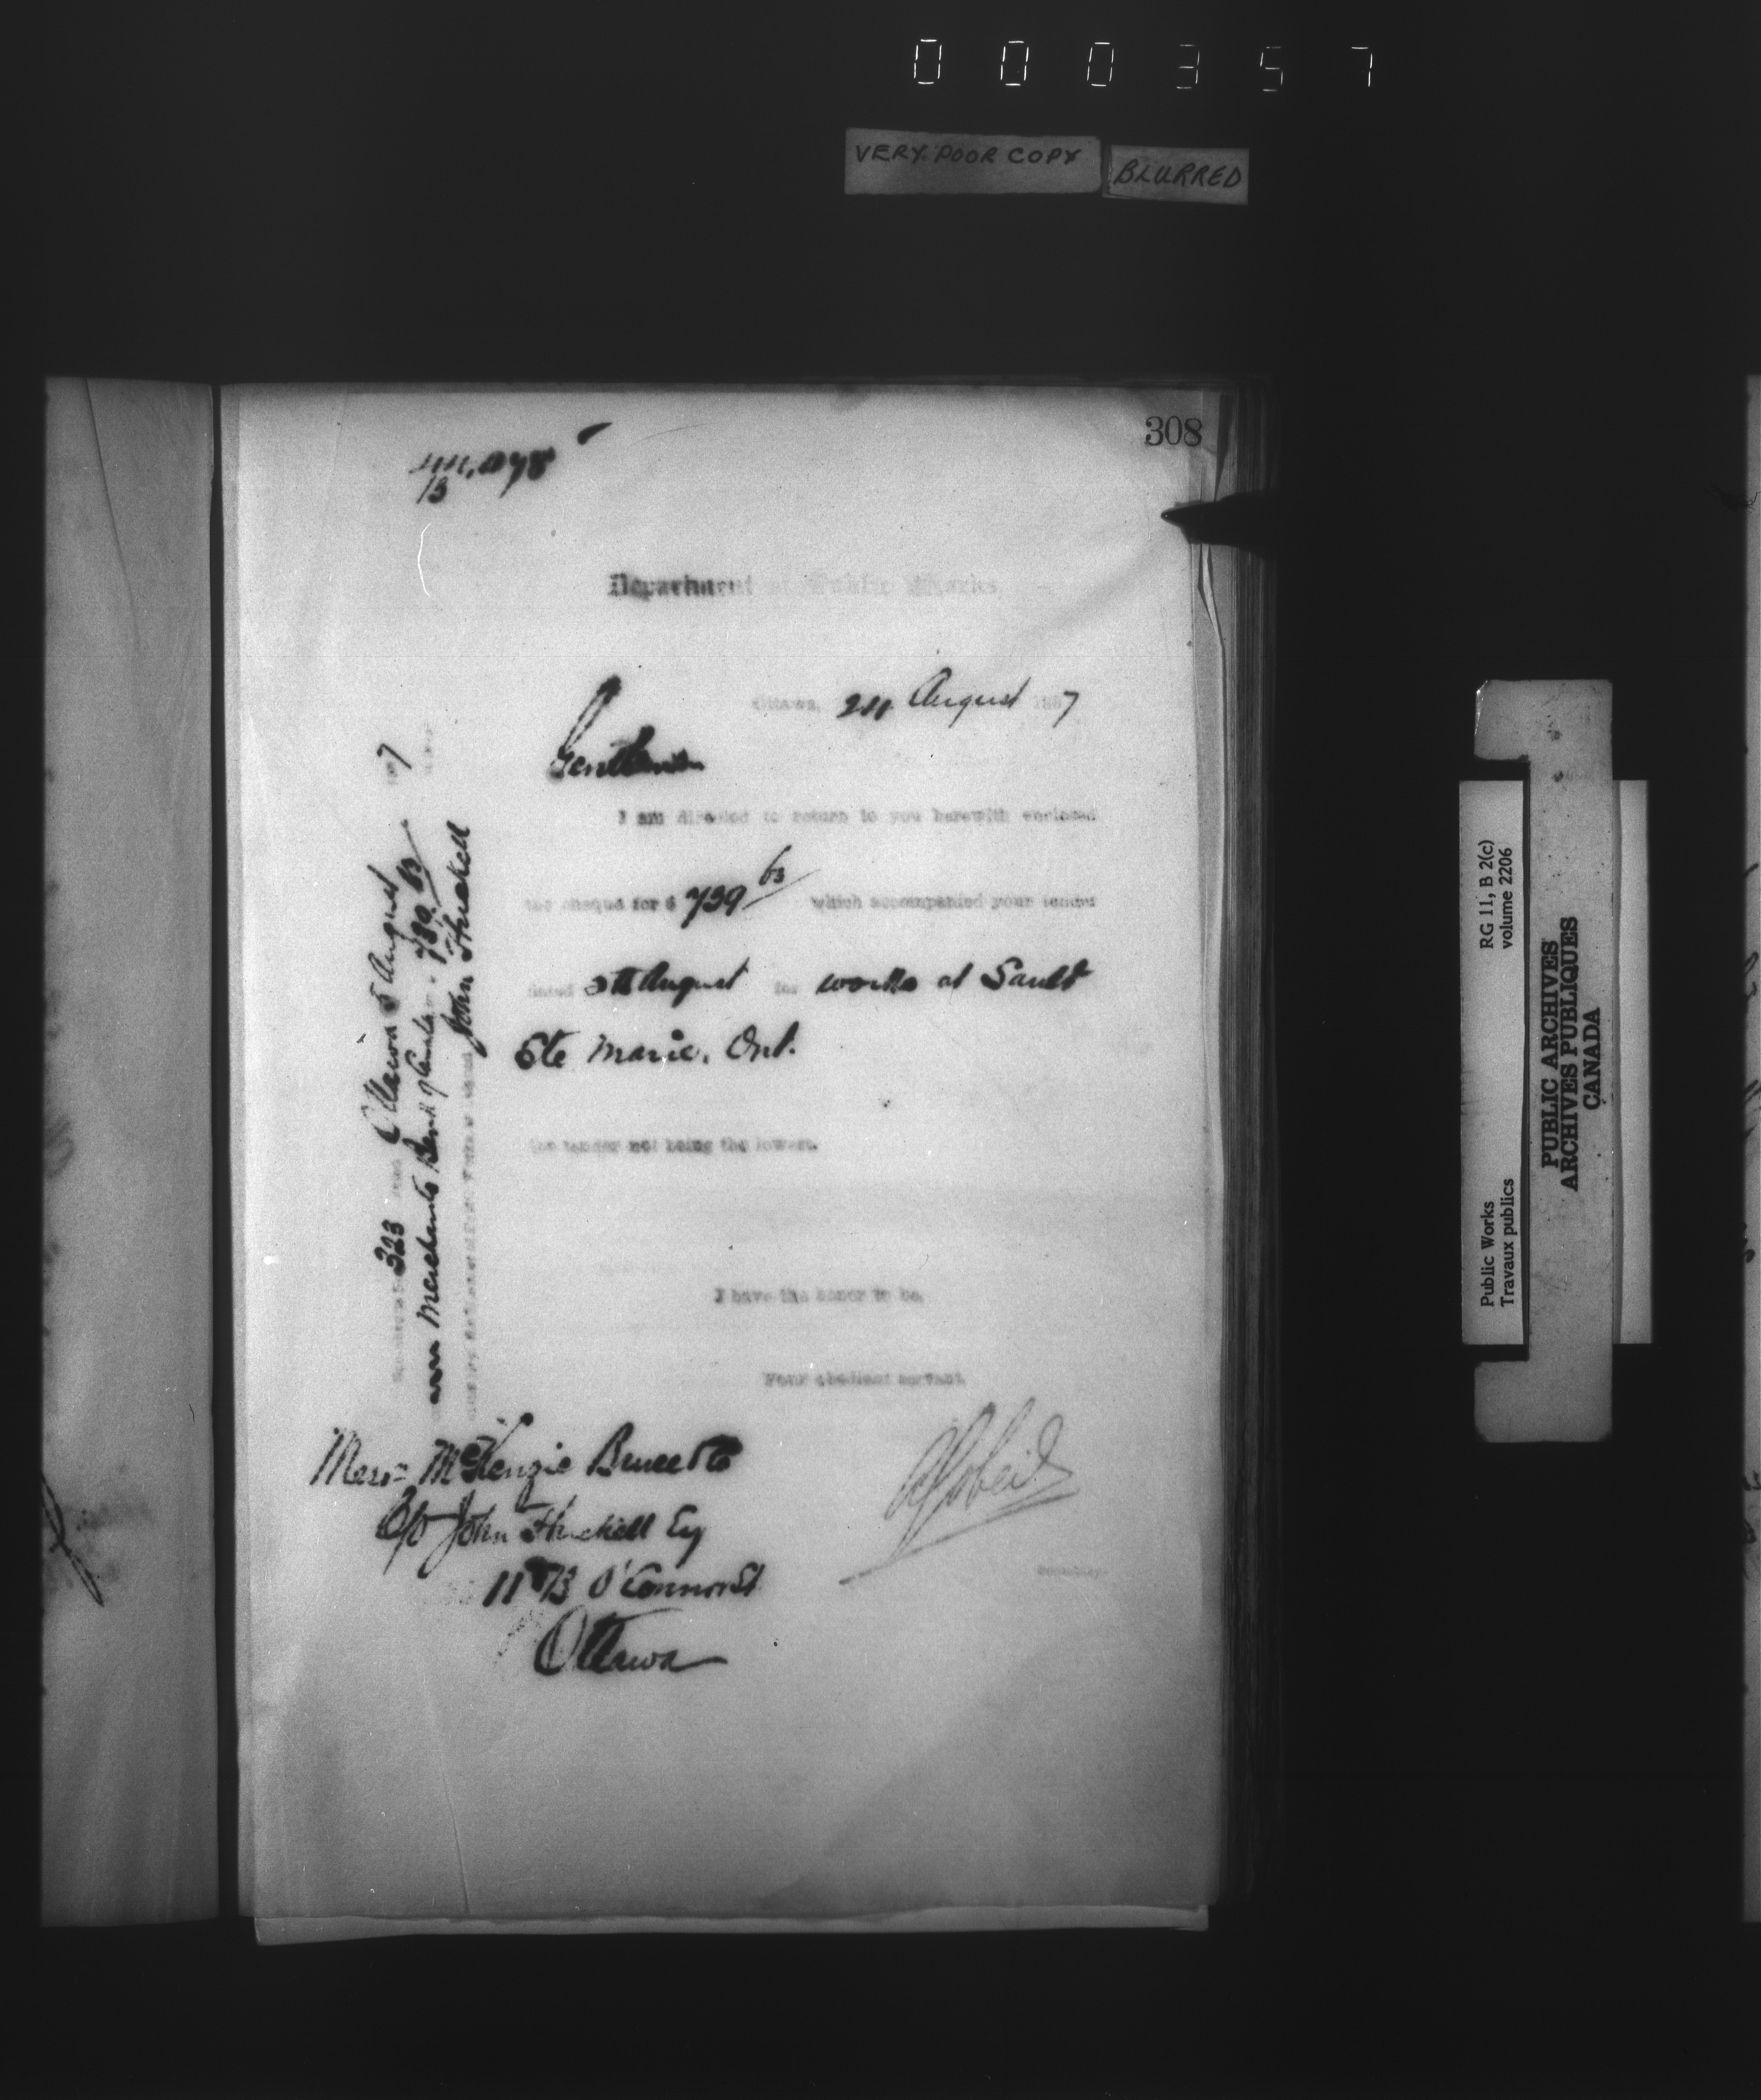 000357
VERY POOR COPY
BLURRED
308
Department of Public Works
Ottawa, 24 August 1887
Gentlemen
I am directed to return to you herewith enclosed
the cheque for $ 739 63 which accompanied your tender
dated 5th August for works at Sault
Ste Marie, Ont.
the tender not being the lowest.
I have the honor to be,
Your obedient servant,
Secretary
Messrs McKenzie Bruce & Co
C/o John Esq
O'Connor St
Ottawa
323 Ottawa 5 August 1887
Merchants Bank of Canada
John
Public Works
Travaux publics
RG 11, B 2(c)
volume 2206
PUBLIC ARCHIVES
ARCHIVES PUBLIQUES
CANADA